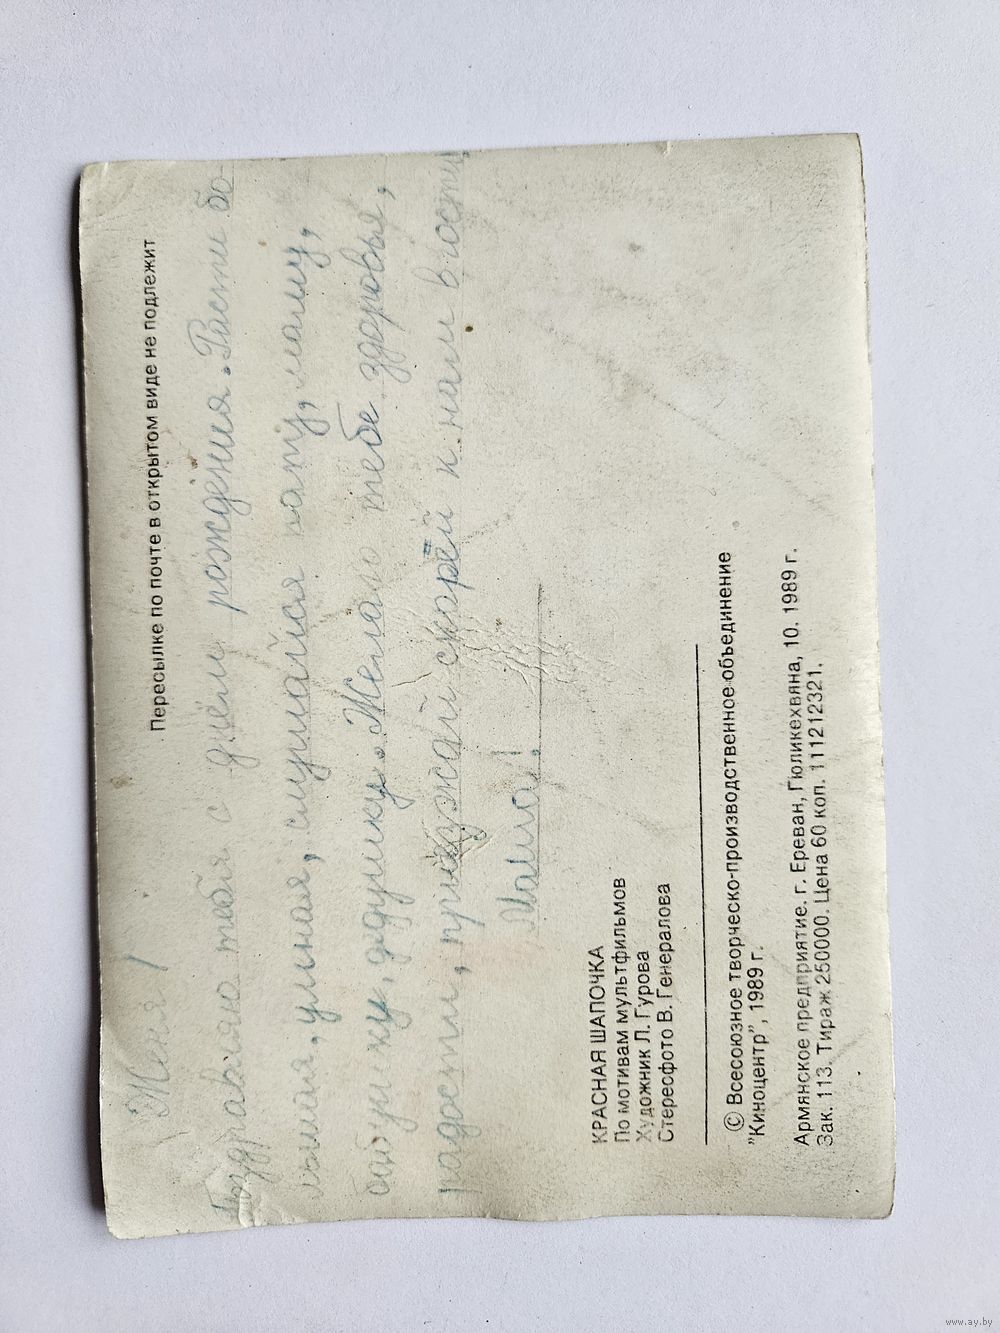 Пересылке по почте в открытом виде не подлежит
Женя!
Поздравляю тебя с днём рождения. Расти бо-
льшая, умная, слушайся папу, маму,
бабушку, дедушку. Желаю тебе здоровья,
радости, приезжай скорей к нам в гости.
Маша!
КРАСНАЯ ШАПОЧКА
По мотивам мультфильмов
Художник Л. Гурова
Стереофото В. Генералова
© Всесоюзное творческо-производственное объединение
"Киноцентр", 1989 г.
Армянское предприятие. г. Ереван, Гюликехвяна, 10. 1989 г.
Зак. 113. Тираж 250000. Цена 60 коп. 111212321.
www.ay.by